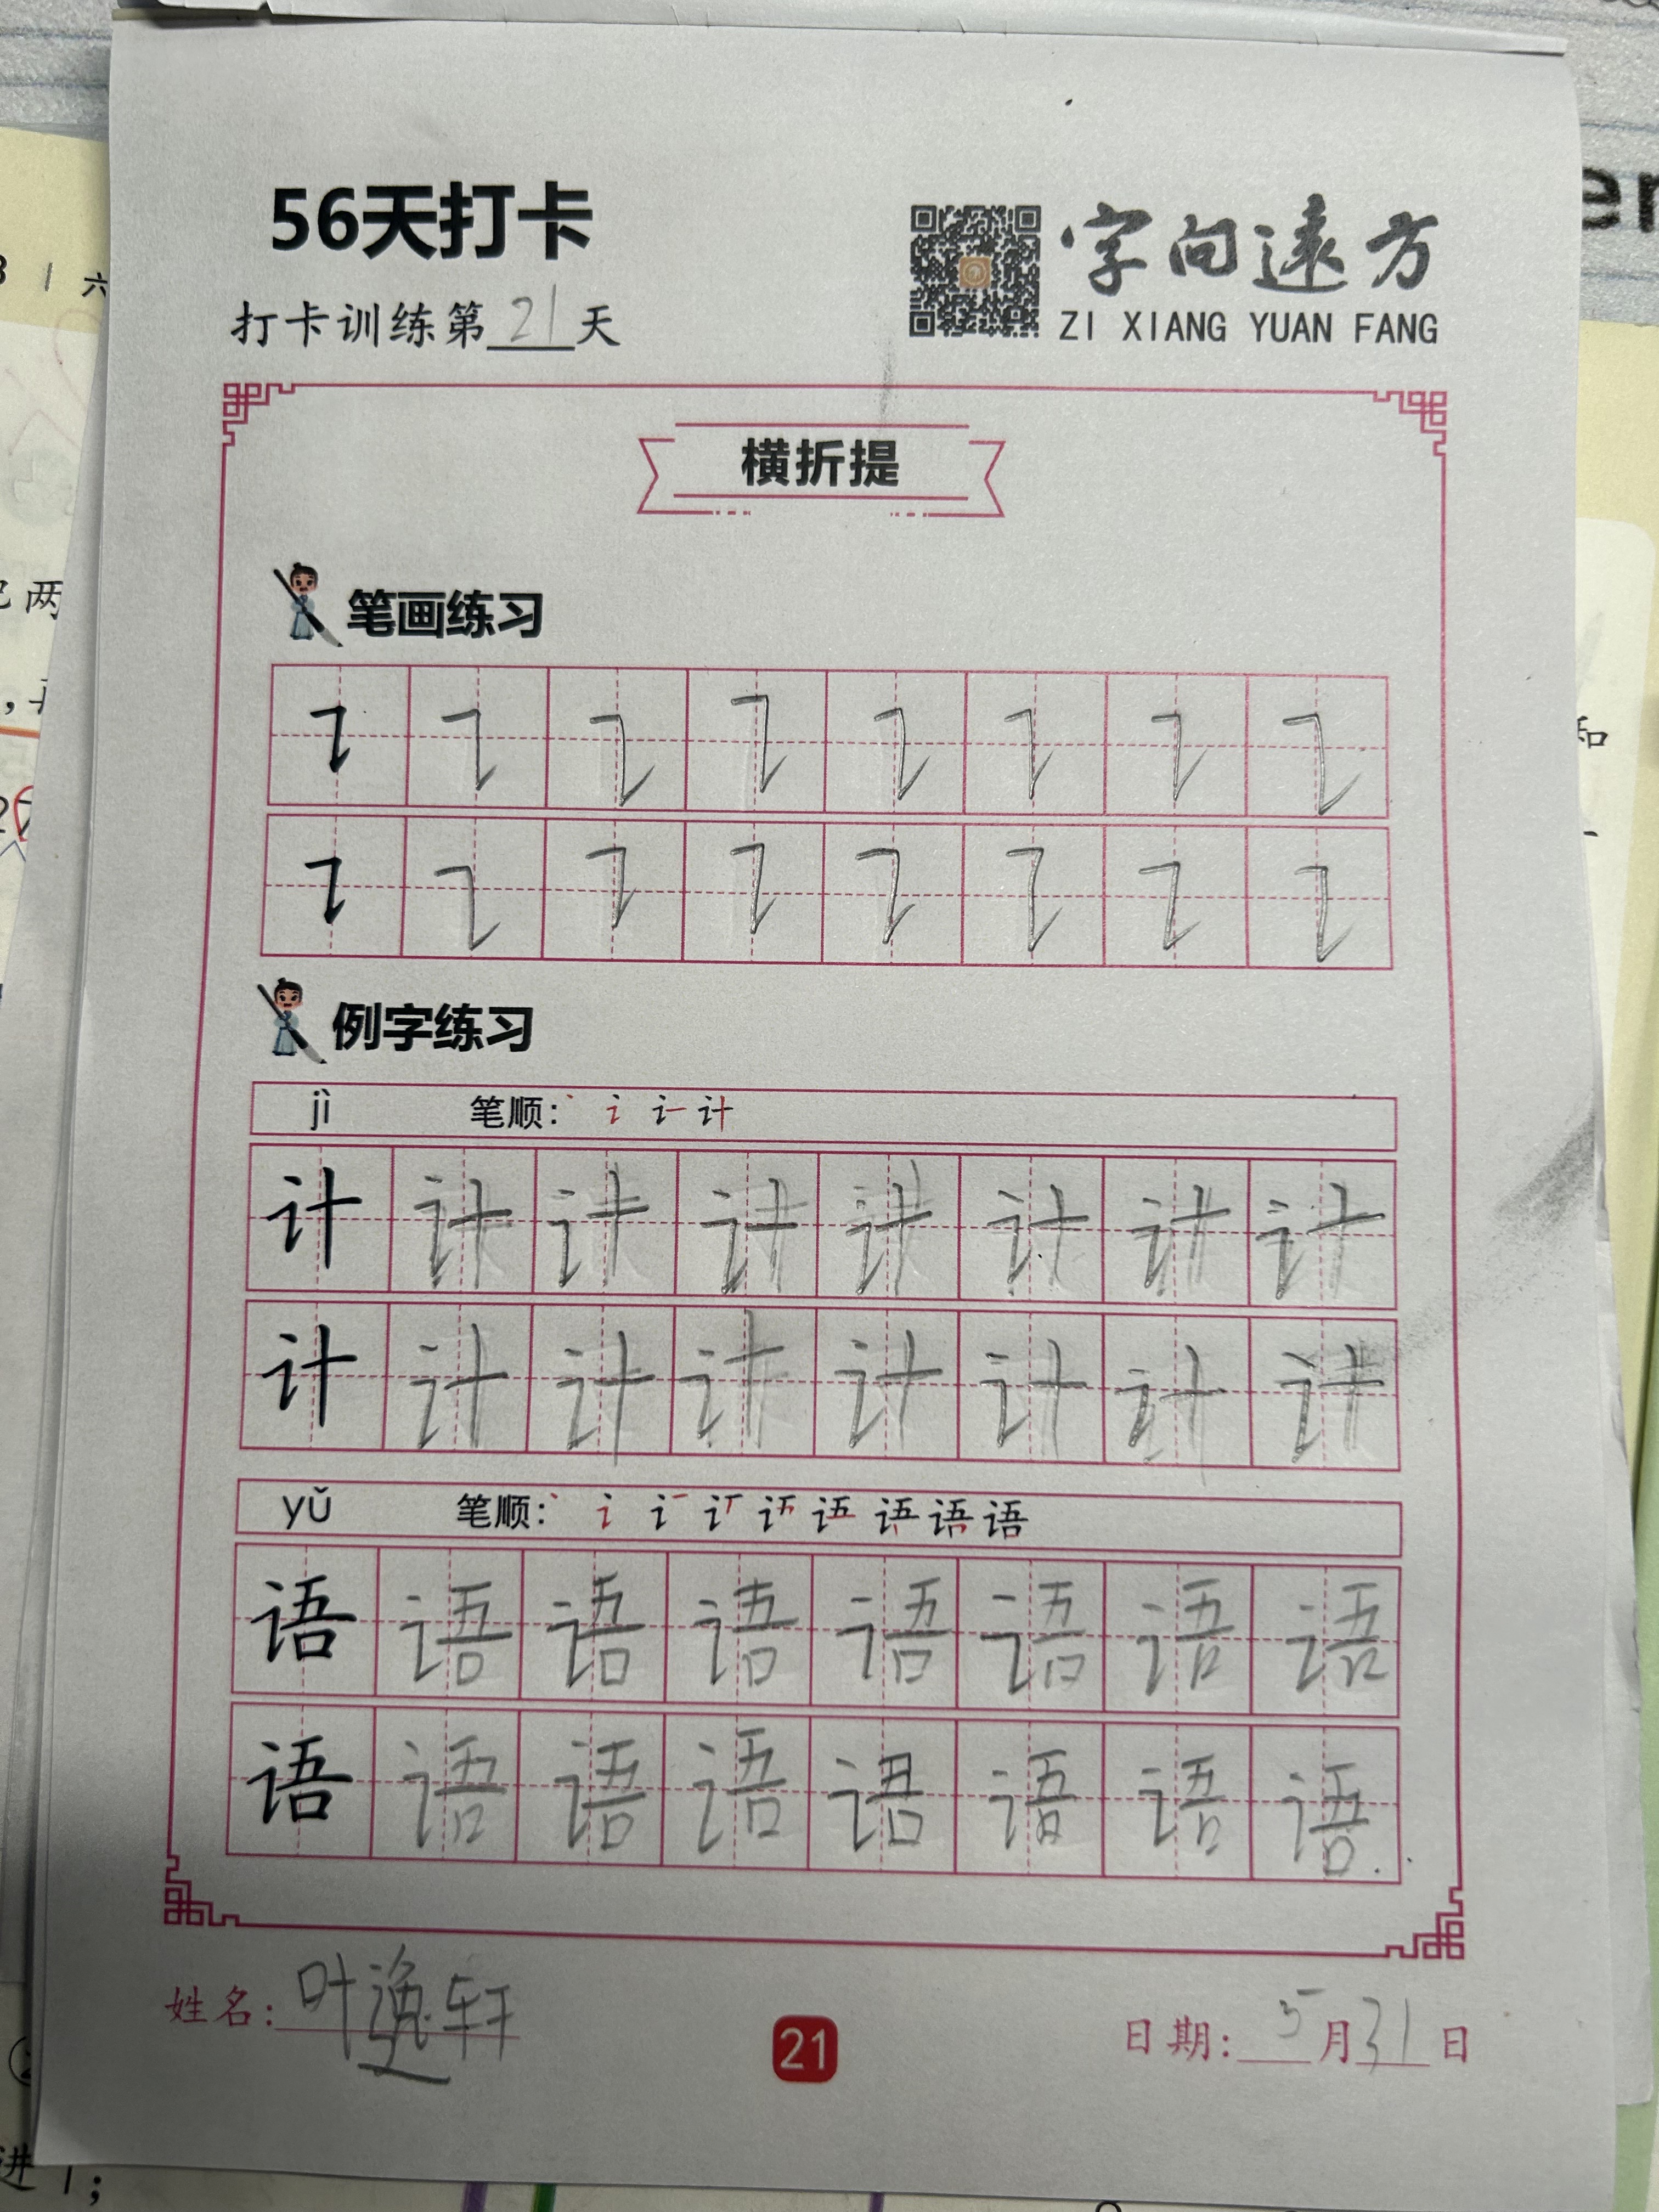 56天打卡
打卡训练第21天
字向远方
ZI XIANG YUAN FANG
横折提
笔画练习
例字练习
jì 笔顺:
计 计 计 计 计 计 计 计
计 计 计 计 计 计 计 计
yǔ 笔顺:
语 语 语 语 语 语 语 语
语 语 语 语 语 语 语 语
姓名:叶逸轩
21
日期:5月31日